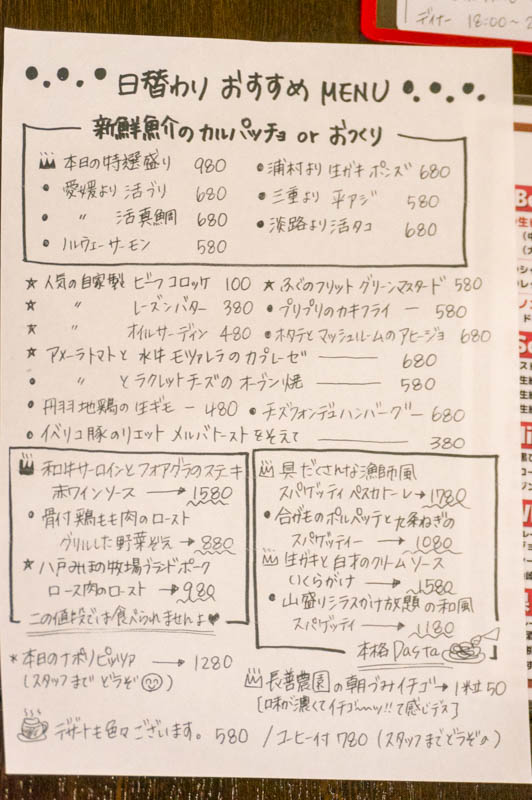 ディナー 18:00〜2
日替わり おすすめ MENU
新鮮魚介の カルパッチョ or おつくり
本日の特選盛り 980
愛媛より 活ブリ 680
〃 活真鯛 680
ノルウェーサーモン 580
浦村より 生ガキ ポンズ 680
三重より 平アジ 580
淡路より 活タコ 680
★ 人気の自家製 ビーフコロッケ 100
★ 〃 レーズンバター 380
★ 〃 オイルサーディン 480
★ ふぐのフリット グリーンマスタード 580
プリプリのカキフライ ー 580
ホタテとマッシュルームのアヒージョ 680
★ アメーラトマトと 水牛 モツァレラの カプレーゼ 680
〃 とラクレットチーズの オーブン焼 580
丹羽地鶏の 生ギモ ー 480
チーズフォンデュハンバーグー 680
イベリコ豚のリエット メルバトーストをそえて 380
和牛サーロインとフォアグラのステーキ
赤ワインソース → 1580
骨付鶏もも肉のロースト
グリルした野菜ぞえ → 880
★ 八戸みほの牧場ブランドポーク
ロース肉のロースト → 980
この値段では食べられませんよ♥
具だくさんな漁師風
スパゲッティ ペスカトーレ → 1780
合がものポルペッテと九条ねぎの
スパゲッティー → 1080
生ガキと白才のクリームソース
いくらがけ → 1580
山盛りシラスかけ放題の和風
スパゲッティ → 1180
本格 Pasta
* 本日のナポリピッツァ → 1280
(スタッフまで どうぞ)
長善農園の 朝づみイチゴ → 1粒50
[味が濃くてイチゴ〜ッ!!て感じデス]
デザートも色々ございます。 580 / コーヒー付 780 (スタッフまでどうぞ)